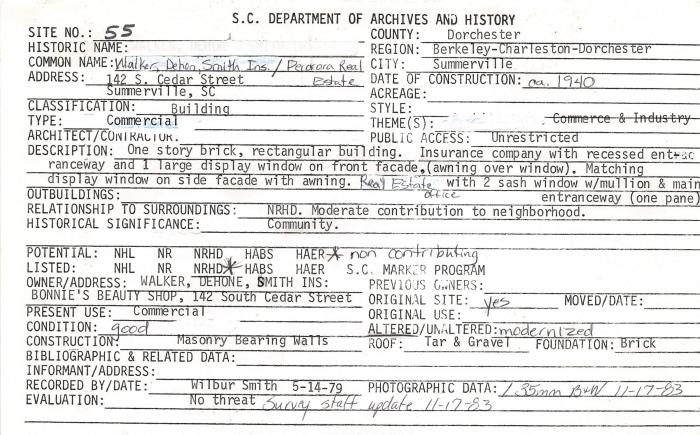 S.C. DEPARTMENT OF ARCHIVES AND HISTORY
SITE NO.: 55 COUNTY: Dorchester
HISTORIC NAME: REGION: Berkeley-Charleston-Dorchester
COMMON NAME: Walker, Dehon, Smith Ins. / Real Estate CITY: Summerville
ADDRESS: 142 S. Cedar Street DATE OF CONSTRUCTION: ca. 1940
Summerville, SC ACREAGE:
CLASSIFICATION: Building STYLE:
TYPE: Commercial THEME(S): Commerce & Industry
ARCHITECT/CONTRACTOR: PUBLIC ACCESS: Unrestricted
DESCRIPTION: One story brick, rectangular building. Insurance company with recessed entrac
ranceway and 1 large display window on front facade, (awning over window). Matching
display window on side facade with awning. Real Estate office with 2 sash window w/mullion & main
OUTBUILDINGS: entranceway (one pane)
RELATIONSHIP TO SURROUNDINGS: NRHD. Moderate contribution to neighborhood.
HISTORICAL SIGNIFICANCE: Community.
POTENTIAL: NHL NR NRHD HABS HAER * non contributing
LISTED: NHL NR NRHD* HABS HAER S.C. MARKER PROGRAM
OWNER/ADDRESS: WALKER, DEHONE, SMITH INS: PREVIOUS OWNERS:
BONNIE'S BEAUTY SHOP, 142 South Cedar Street ORIGINAL SITE: yes MOVED/DATE:
PRESENT USE: Commercial ORIGINAL USE:
CONDITION: good ALTERED/UNALTERED: modernized
CONSTRUCTION: Masonry Bearing Walls ROOF: Tar & Gravel FOUNDATION: Brick
BIBLIOGRAPHIC & RELATED DATA:
INFORMANT/ADDRESS:
RECORDED BY/DATE: Wilbur Smith 5-14-79 PHOTOGRAPHIC DATA: 1 35mm B&W 11-17-83
EVALUATION: No threat Survey staff update 11-17-83